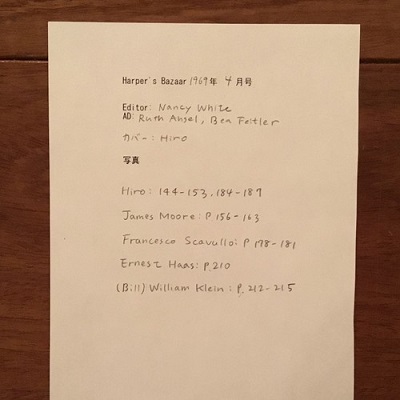 Harper's Bazaar 1969年 4月号
Editor: Nancy White
AD: Ruth Ansel, Bea Feitler
カバー: Hiro
写真
Hiro: 144-153, 184-189
James Moore: P 156-163
Francesco Scavullo: P 178-181
Ernest Haas: P. 210
(Bill) William Klein: P. 212-215